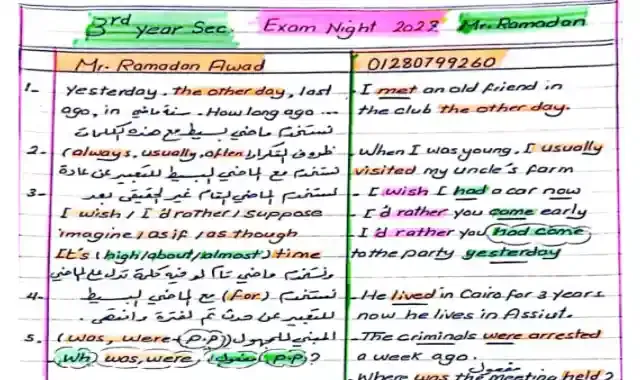 3rd year Sec. Exam Night 2022 Mr. Ramadan
Mr. Ramadan Awad
01280799260
1- Yesterday, the other day, last
ago, in سنة ماضي. How long ago ...
نستخدم ماضي بسيط مع هذه الكلمات
- I met an old friend in
the club the other day.
2- (always, usually, often) ظروف التكرار
تستخدم مع الماضي البسيط للتعبير عن عادة
- When I was young, I usually
visited my uncle's farm
3- نستخدم الماضي التام غير الحقيقي بعد
I wish / I'd rather / suppose
imagine / as if / as though
It's (high/about/almost) time
ونستخدم ماضي تام لو فيه كلمة تدل على الماضي
- I wish I had a car now
- I'd rather you came early
- I'd rather you had come
to the party yesterday
4- نستخدم (for) مع الماضي البسيط
للتعبير عن حدث تم لفترة وانتهى.
- He lived in Cairo for 3 years
now he lives in Assiut.
5. (was, were + p.p) المبني للمجهول
Wh was, were, مفعول p.p ?
- The criminals were arrested
a week ago.
مفعول
- Where was the meeting held ?